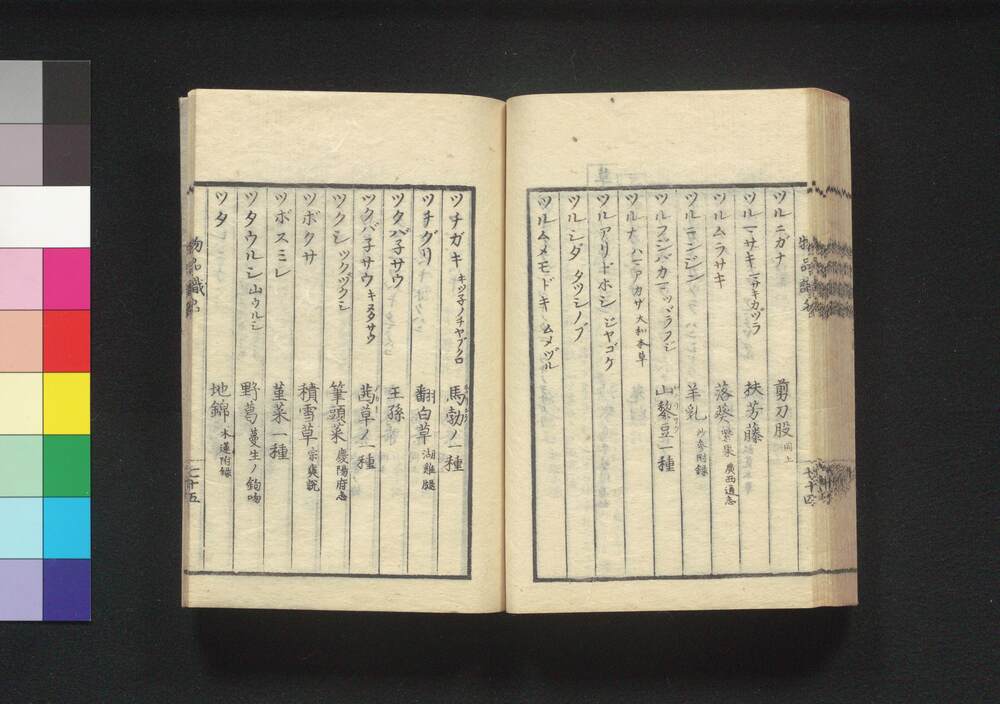 ツルニガナ 剪刀股 同上
ツルマサキ マサキカヅラ 扶芳藤
ツルムラサキ 落葵 紫菜 廣西通志
ツルニンジン 羊乳 附錄
ツルフジバカマ ツヅラフジ 山黎豆一種
ツルナ ハマアカザ 大和本草
ツルアリドホシ ジヤゴケ
ツルシダ タツシノブ
ツルムメモドキ ムメヅル
七十四
ツチガキ キツ子ノチヤブクロ 馬勃ノ一種
ツチグリ 翻白草 湖雞腿
ツクバ子サウ 王孫
ツクバ子サウ キヌタサウ 茜草ノ一種
ツクシ ツクヅクシ 筆頭菜 慶陽府志
ツボクサ 積雪草 宗奭說
ツボスミレ 菫菜一種
ツタウルシ 山ウルシ 野葛 蔓生ノ鉤吻
ツタ 地錦 木蓮附錄
物品識名
七十五